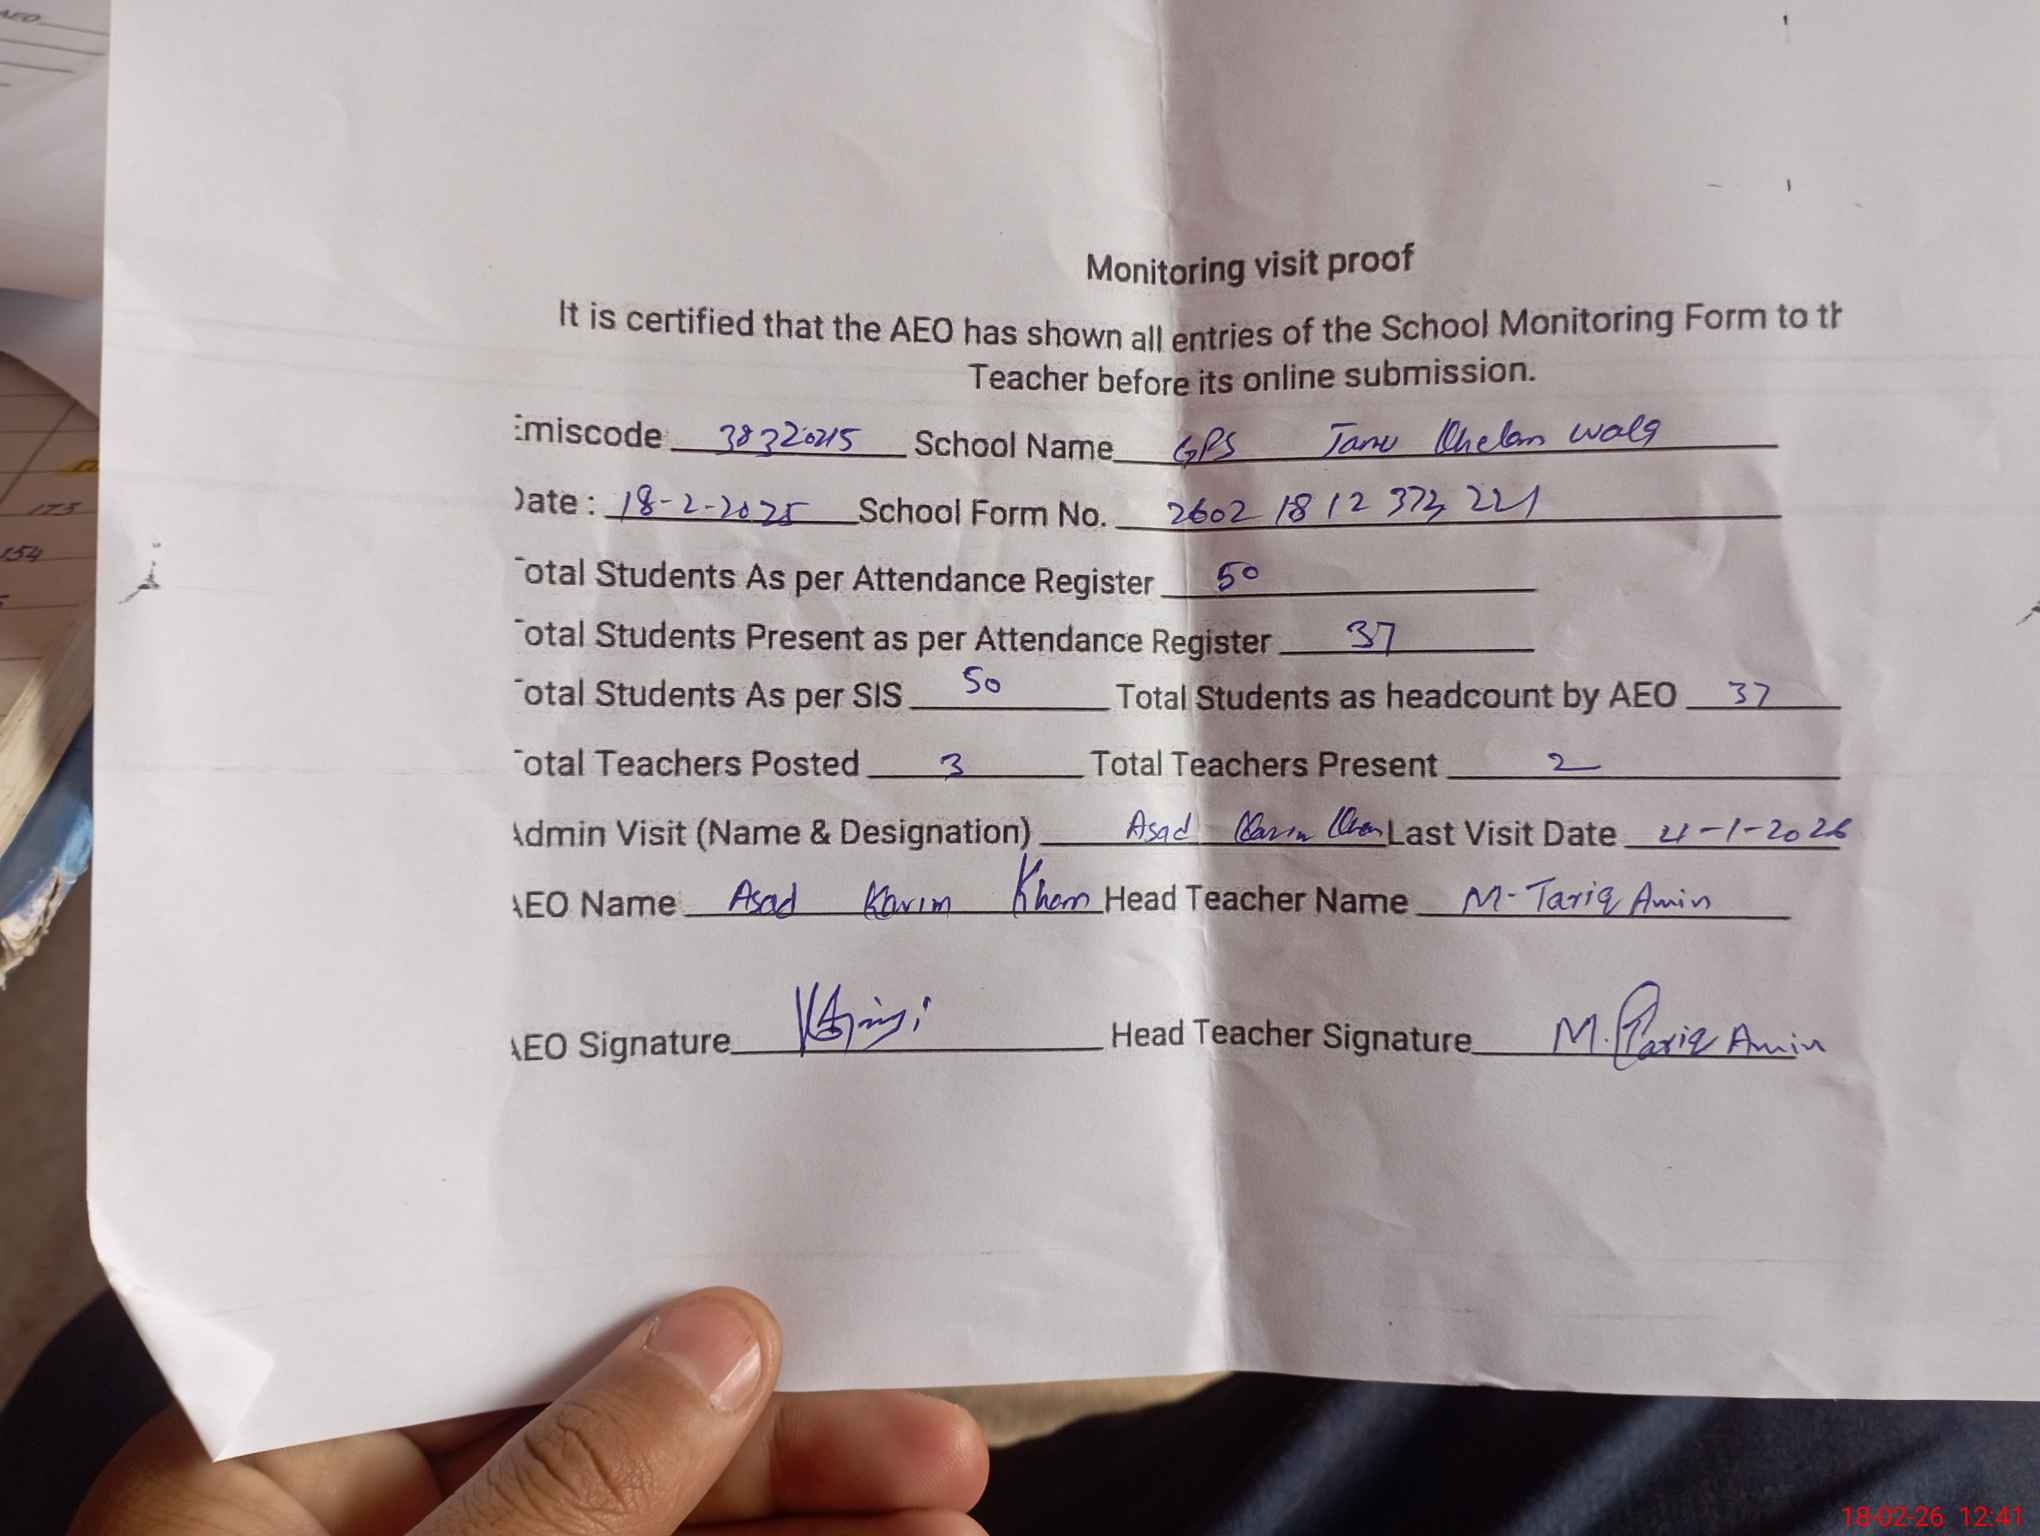 AEO
173
154
Monitoring visit proof
It is certified that the AEO has shown all entries of the School Monitoring Form to th
Teacher before its online submission.
Emiscode 38320215 School Name GPS Janu Khelan wala
Date : 18-2-2025 School Form No. 2602 18 12 373 221
Total Students As per Attendance Register 50
Total Students Present as per Attendance Register 37
Total Students As per SIS 50 Total Students as headcount by AEO 37
Total Teachers Posted 3 Total Teachers Present 2
Admin Visit (Name & Designation) Asad Karim Khan Last Visit Date -1-2026
AEO Name Asad Karim Khan Head Teacher Name M-Tariq Amin
AEO Signature Head Teacher Signature M. Tariq Amin
18-02-26 12:41